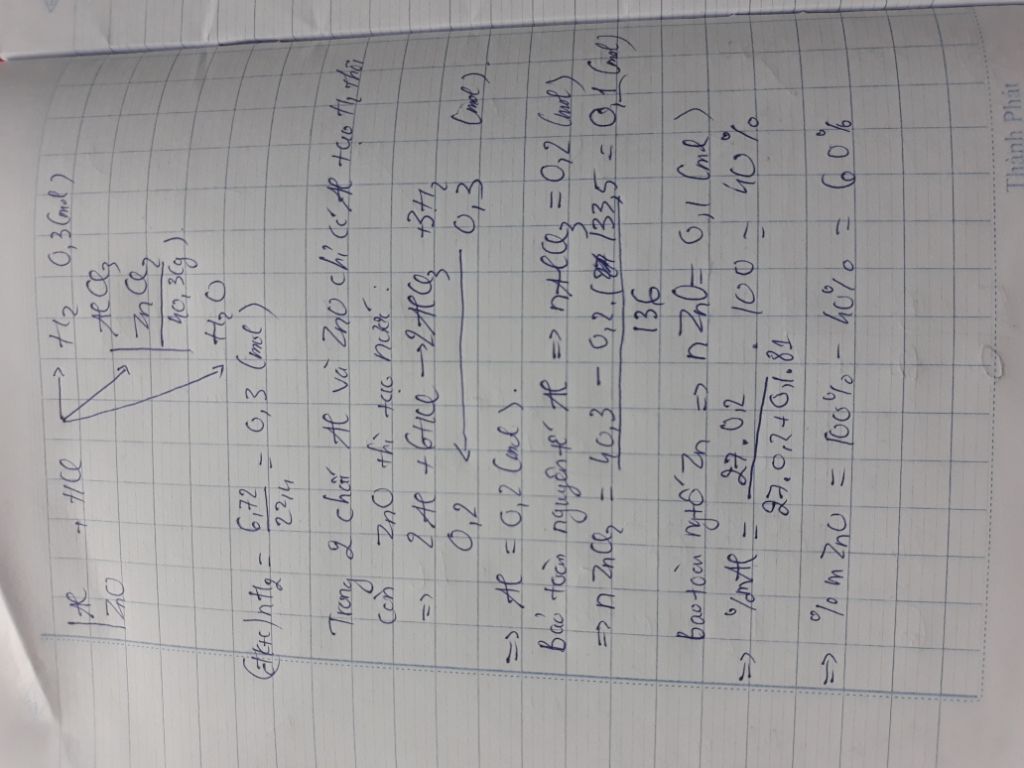 Al + HCl → H2 0,3 (mol)
ZnO
AlCl3
ZnCl2
40,3(g)
H2O
(đktc) nH2 = 6,72 / 22,4 = 0,3 (mol)
Trong 2 chất Al và ZnO chỉ có Al tạo H2 thôi
còn ZnO thì tạo nước.
=> 2Al + 6HCl → 2AlCl3 + 3H2
0,2 ← 0,3 (mol)
=> Al = 0,2 (mol).
Bảo toàn nguyên tố Al => nAlCl3 = 0,2 (mol)
=> nZnCl2 = 40,3 - 0,2.(133,5) / 136 = 0,1 (mol)
bảo toàn ngtố Zn => nZnO = 0,1 (mol)
=> %mAl = 27.0,2 / 27.0,2+0,1.81 . 100 = 40%
=> %mZnO = 100% - 40% = 60%
Thành Phát